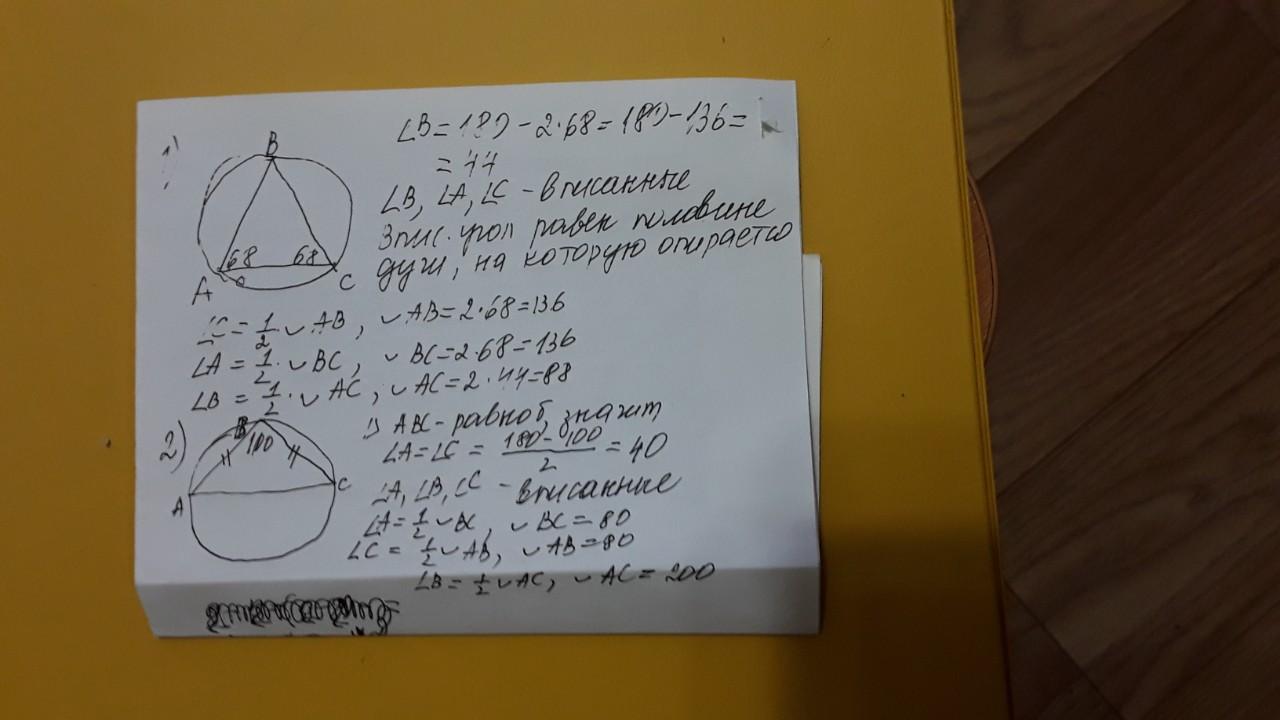 1)
B
68 68
A C
∠B = 180 - 2·68 = 180 - 136 =
= 44
∠B, ∠A, ∠C - вписанные
Впис. угол равен половине
дуги, на которую опирается
∠C = 1/2 ◡ AB, ◡ AB = 2·68 = 136
∠A = 1/2 · ◡ BC, ◡ BC = 2·68 = 136
∠B = 1/2 · ◡ AC, ◡ AC = 2·44 = 88
2)
B
100
A C
1) ABC - равноб, значит
∠A = ∠C = (180 - 100)/2 = 40
∠A, ∠B, ∠C - вписанные
∠A = 1/2 ◡ BC, ◡ BC = 80
∠C = 1/2 ◡ AB, ◡ AB = 80
∠B = 1/2 ◡ AC, ◡ AC = 200